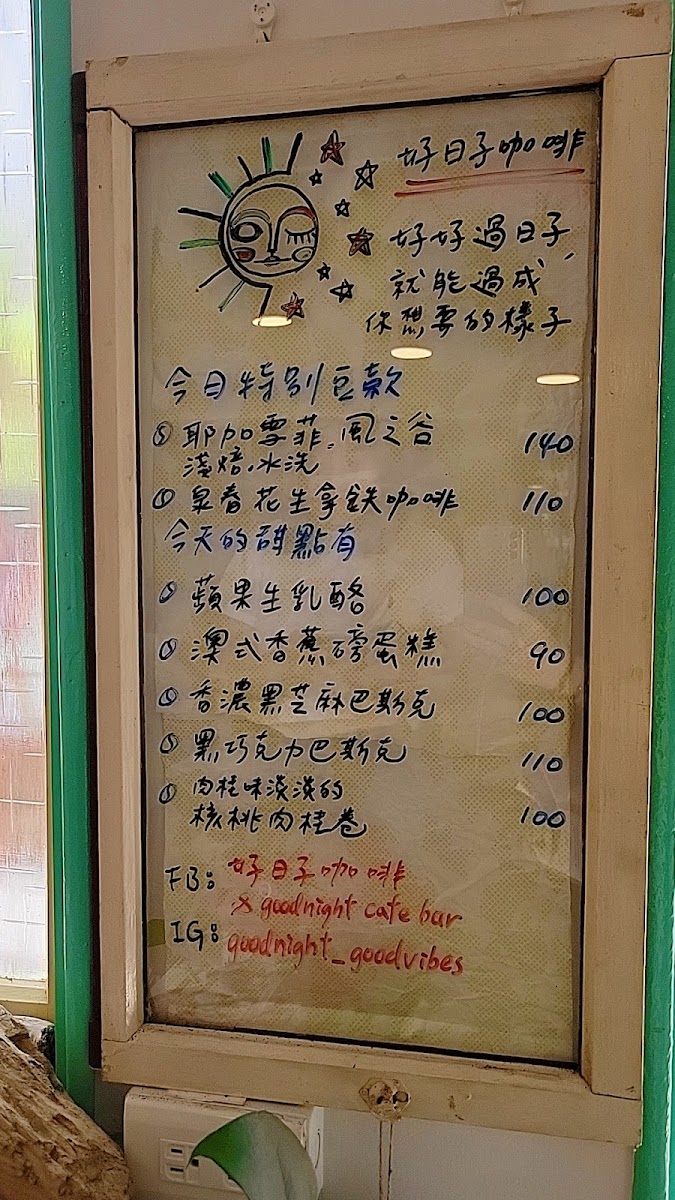 好日子咖啡
好好過日子,
就能過成
你想要的樣子
今日特別豆款
耶加雪菲.風之谷 140
淺焙.水洗
泉春花生拿鐵咖啡 110
今天的甜點有
蘋果生乳酪 100
澳式香蕉磅蛋糕 90
香濃黑芝麻巴斯克 100
黑巧克力巴斯克 110
肉桂味淺淺的
核桃肉桂卷 100
FB: 好日子咖啡
x goodnight cafe bar
IG: goodnight_goodvibes